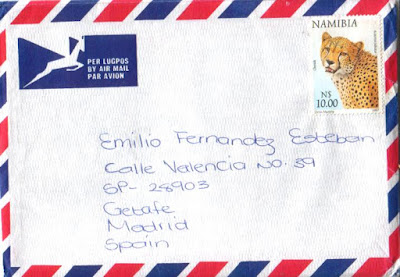 PER LUGPOS
BY AIR MAIL
PAR AVION
NAMIBIA
N$
10.00
Emilio Fernandez Esteban
Calle Valencia No. 39
SP- 28903
Getafe
Madrid
Spain